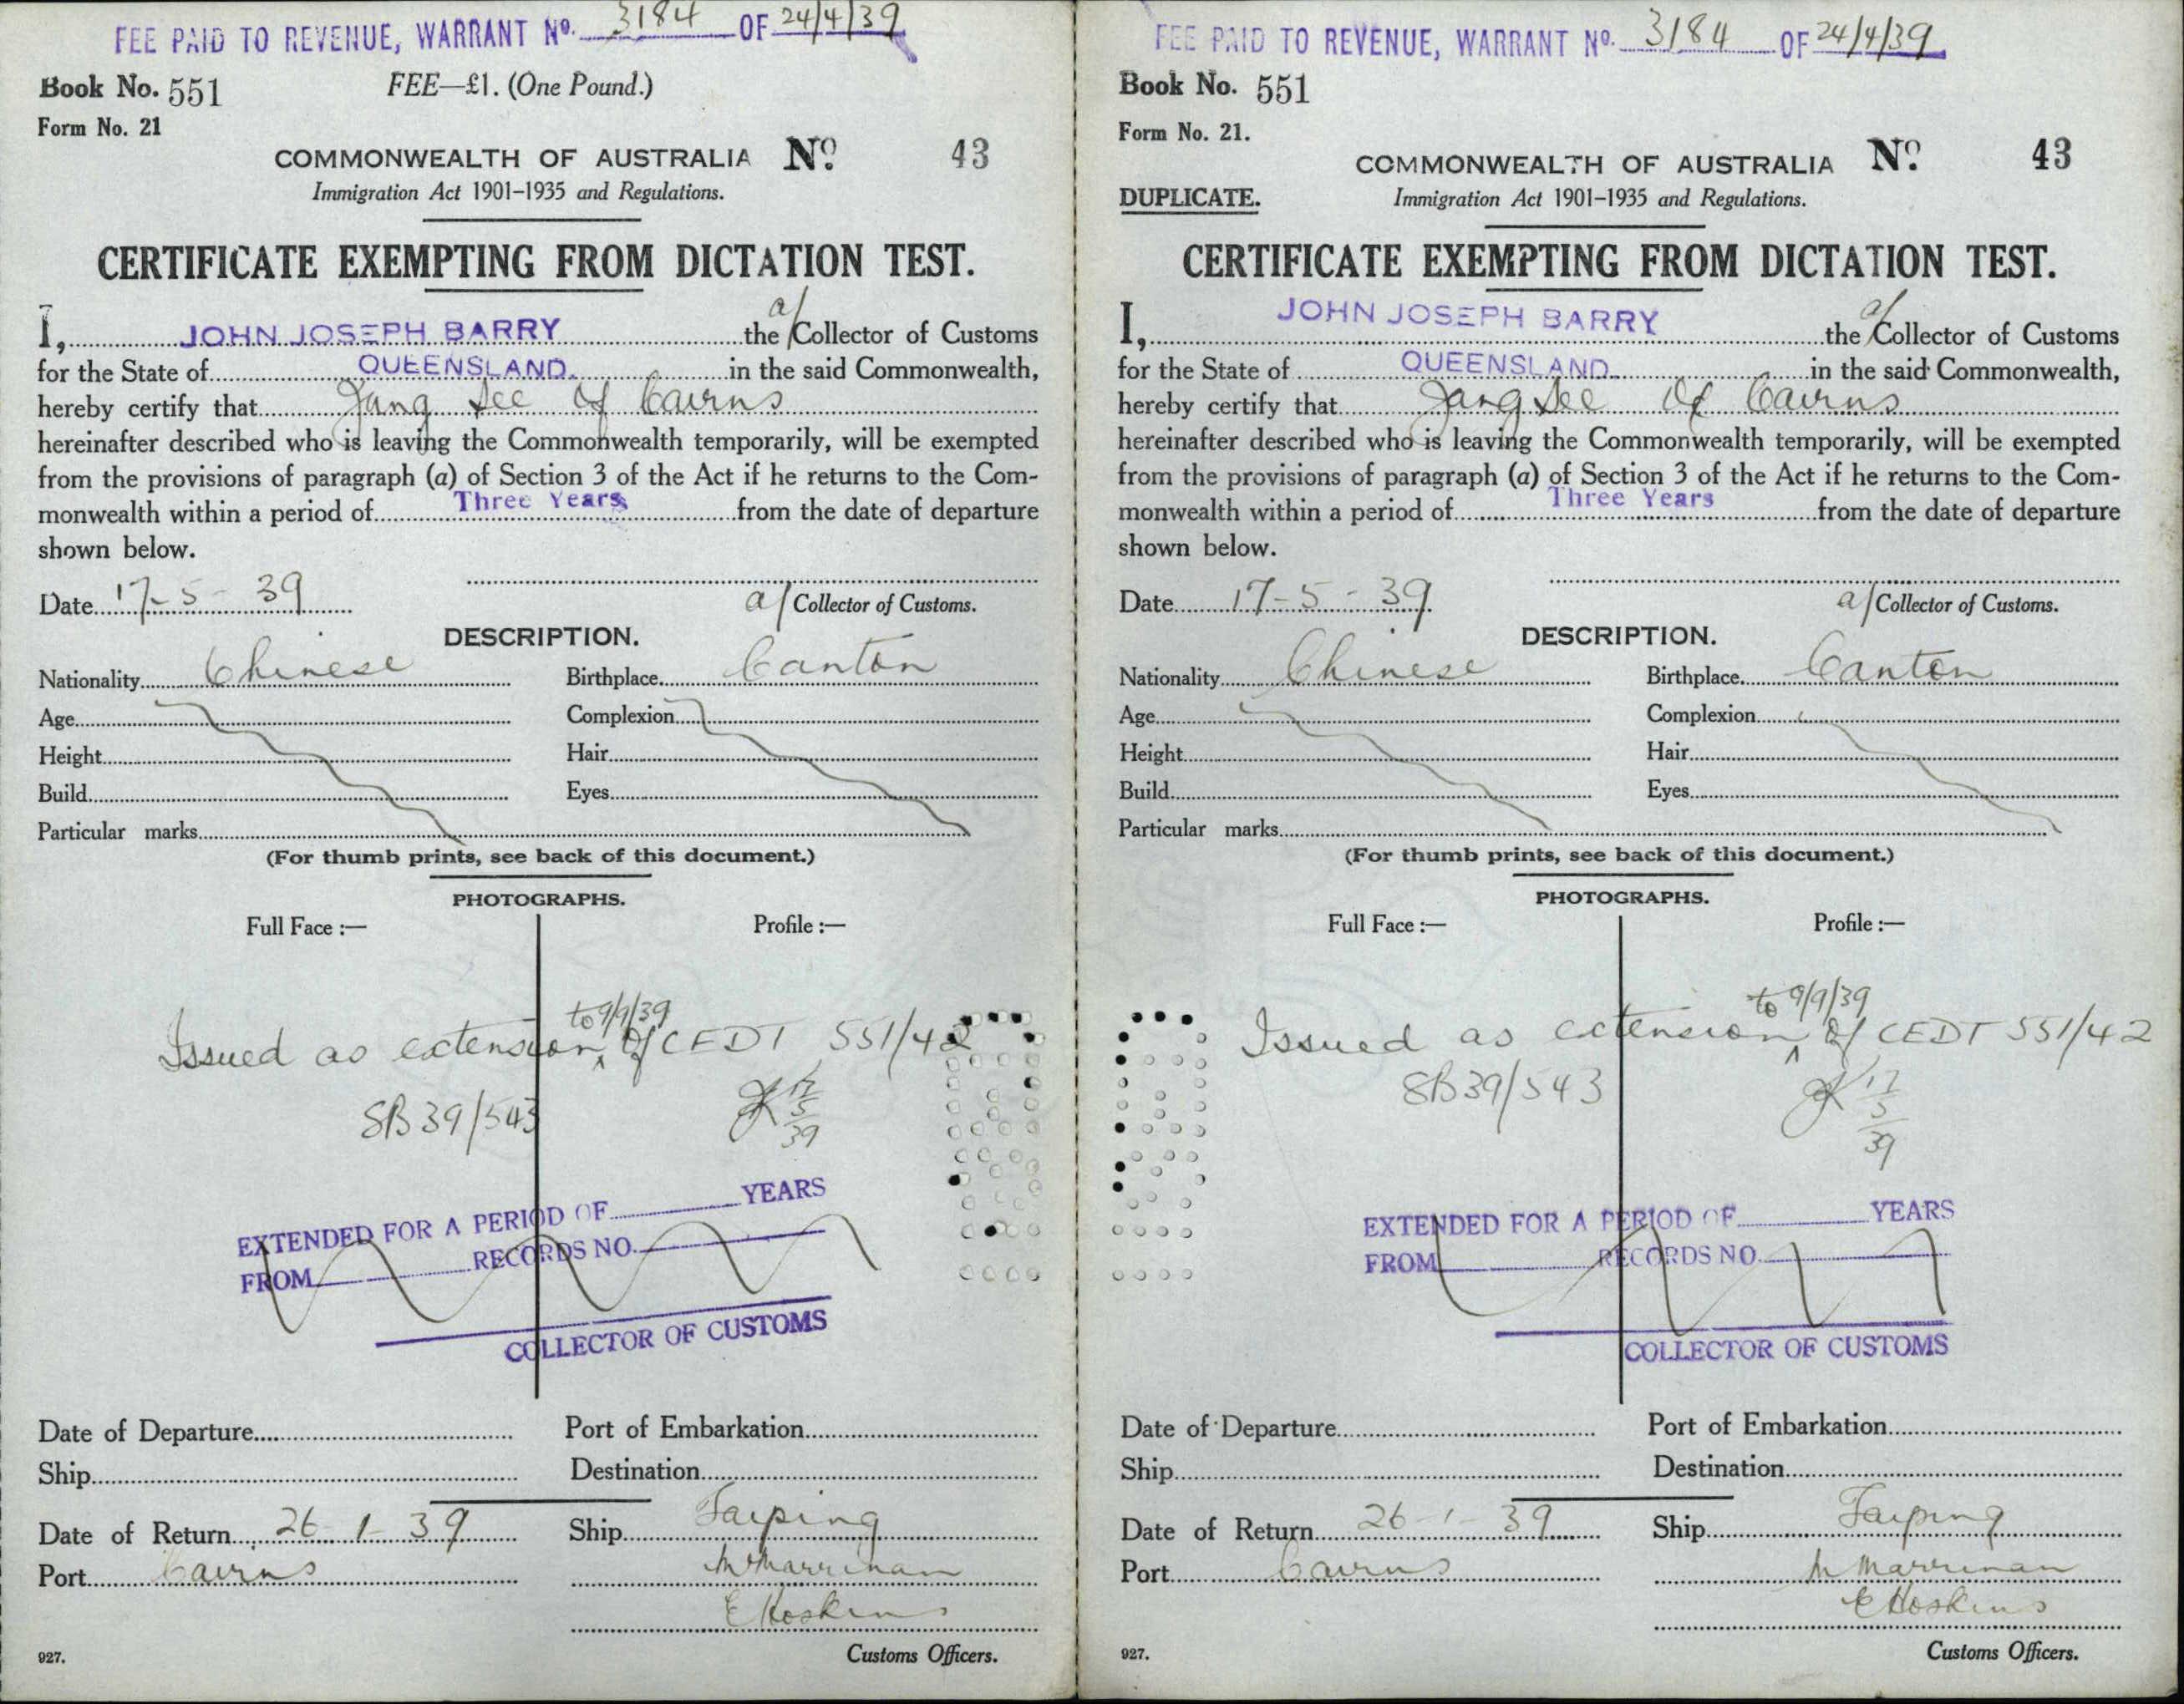 FEE PAID TO REVENUE, WARRANT No. 3184 OF 24/4/39
Book No. 551 FEE—£1. (One Pound.)
Form No. 21
COMMONWEALTH OF AUSTRALIA No. 43
Immigration Act 1901-1935 and Regulations.
CERTIFICATE EXEMPTING FROM DICTATION TEST.
I, JOHN JOSEPH BARRY the a/ Collector of Customs
for the State of QUEENSLAND. in the said Commonwealth,
hereby certify that Jang See of Cairns
hereinafter described who is leaving the Commonwealth temporarily, will be exempted
from the provisions of paragraph (a) of Section 3 of the Act if he returns to the Com-
monwealth within a period of Three Years from the date of departure
shown below.
Date 17-5-39 a/ Collector of Customs.
DESCRIPTION.
Nationality Chinese Birthplace Canton
Age Complexion
Height Hair
Build Eyes
Particular marks
(For thumb prints, see back of this document.)
PHOTOGRAPHS.
Full Face :— Profile :—
to 9/9/39
Issued as extension of CEDT 551/42
SB 39/543 17/5/39
EXTENDED FOR A PERIOD OF YEARS
FROM RECORDS NO.
COLLECTOR OF CUSTOMS
Date of Departure Port of Embarkation
Ship Destination
Date of Return 26-1-39 Ship Taiping
Port Cairns M Marrinan
E Hoskins
927. Customs Officers.
FEE PAID TO REVENUE, WARRANT No. 3184 OF 24/4/39
Book No. 551
Form No. 21.
COMMONWEALTH OF AUSTRALIA No. 43
DUPLICATE. Immigration Act 1901-1935 and Regulations.
CERTIFICATE EXEMPTING FROM DICTATION TEST.
I, JOHN JOSEPH BARRY the a/ Collector of Customs
for the State of QUEENSLAND in the said Commonwealth,
hereby certify that Jang See of Cairns
hereinafter described who is leaving the Commonwealth temporarily, will be exempted
from the provisions of paragraph (a) of Section 3 of the Act if he returns to the Com-
monwealth within a period of Three Years from the date of departure
shown below.
Date 17-5-39. a/ Collector of Customs.
DESCRIPTION.
Nationality Chinese Birthplace Canton
Age Complexion
Height Hair
Build Eyes
Particular marks
(For thumb prints, see back of this document.)
PHOTOGRAPHS.
Full Face :— Profile :—
to 9/9/39
Issued as extension of CEDT 551/42
SB 39/543 17/5/39
EXTENDED FOR A PERIOD OF YEARS
FROM RECORDS NO.
COLLECTOR OF CUSTOMS
Date of Departure Port of Embarkation
Ship Destination
Date of Return 26-1-39 Ship Taiping
Port Cairns M Marrinan
E Hoskins
927. Customs Officers.